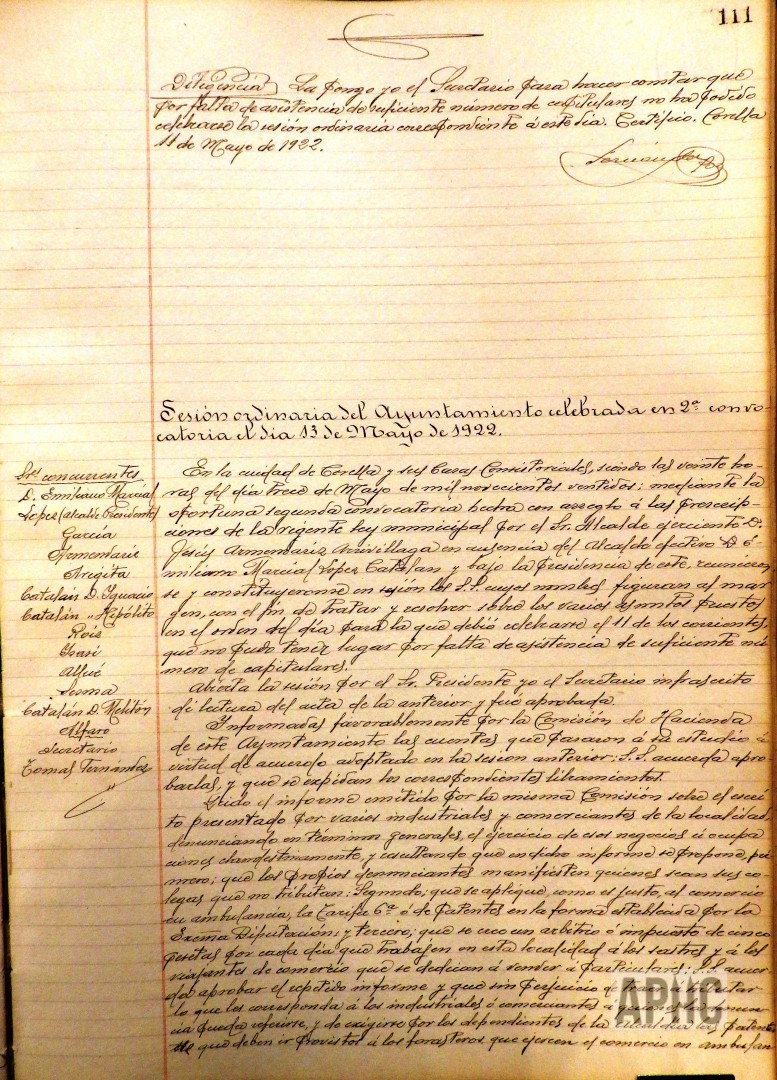 111
Diligencia) La pongo yo el Secretario para hacer constar que
por falta de asistencia de suficiente número de capitulares no ha podido
celebrarse la sesión ordinaria correspondiente á este dia. Certifico. Corella
11 de Mayo de 1922.
Sesión ordinaria del Ayuntamiento celebrada en 2ª convo-
catoria el dia 13 de Mayo de 1922.
Sres concurrentes
D. Emiliano Marcial
Lopez (alcalde Presidente)
Garcia
Armendariz
Aregita
Catalán D. Ignacio
Catalán " Hipólito
Rois
Sesma
Catalán D. Melitón
Alfaro
Secretario
Tomas Fernández
En la ciudad de Corella y sus Casas Consistoriales, siendo las veinte ho-
ras del dia trece de Mayo de mil novecientos ventidos; mediante la
oportuna segunda convocatoria hecha con arreglo á las prescrip-
ciones de la vigente ley municipal por el Sr. Alcalde ejerciente D.
Jesús Armendariz Arrivillaga en ausencia del Alcalde efectivo D. E-
miliano Marcial López Catalan y bajo la Presidencia de este, reunieron
se y constituyeronse en sesión los S.S. cuyos nombres figuran al mar-
gen, con el fin de tratar y resolver sobre los varios asuntos puestos
en el orden del dia para la que debió celebrarse el 11 de los corrientes,
que no pudo tener lugar por falta de asistencia de suficiente nú-
mero de capitulares.
Abierta la sesión por el Sr. Presidente yo el Secretario infrascrito
di lectura del acta de la anterior y fué aprobada.
Informadas favorablemente por la Comisión de Hacienda
de este Ayuntamiento las cuentas que pasaron á su estudio á
virtud de acuerdo adoptado en la sesion anterior; S.S. acuerda apro-
barlas, y que se expidan los correspondientes libramientos.
Leido el informe emitido por la misma Comisión sobre el escri-
to presentado por varios industriales y comerciantes de la localidad,
denunciando en términos generales, el ejercicio de esos negocios ú ocupa
ciones clandestinamente, y resultando que en dicho informe se propone, pri
mero; que los propios denunciantes manifiesten quienes sean sus co-
legas que no tributan: Segundo; que se aplique, como es justo, al comercio
en ambulancia, la Tarifa 6ª ó de patentes en la forma establecida por la
Excma Diputación; y tercero; que se cree un arbitrio ó impuesto de cinco
pesetas por cada dia que trabajen en esta localidad á los sastres y á los
viajantes de comercio que se dedican á vender á particulares; S.S. acuer-
da aprobar el repetido informe y que sin perjuicio de hacer á tributar
lo que les corresponda á los industriales ó comerciantes á quienes la denun
cia pueda referirse, y de exigirse por los dependientes de la Alcaldia las patentes
de que deben ir provistos á los forasteros que ejercen el comercio en ambulan
APHG